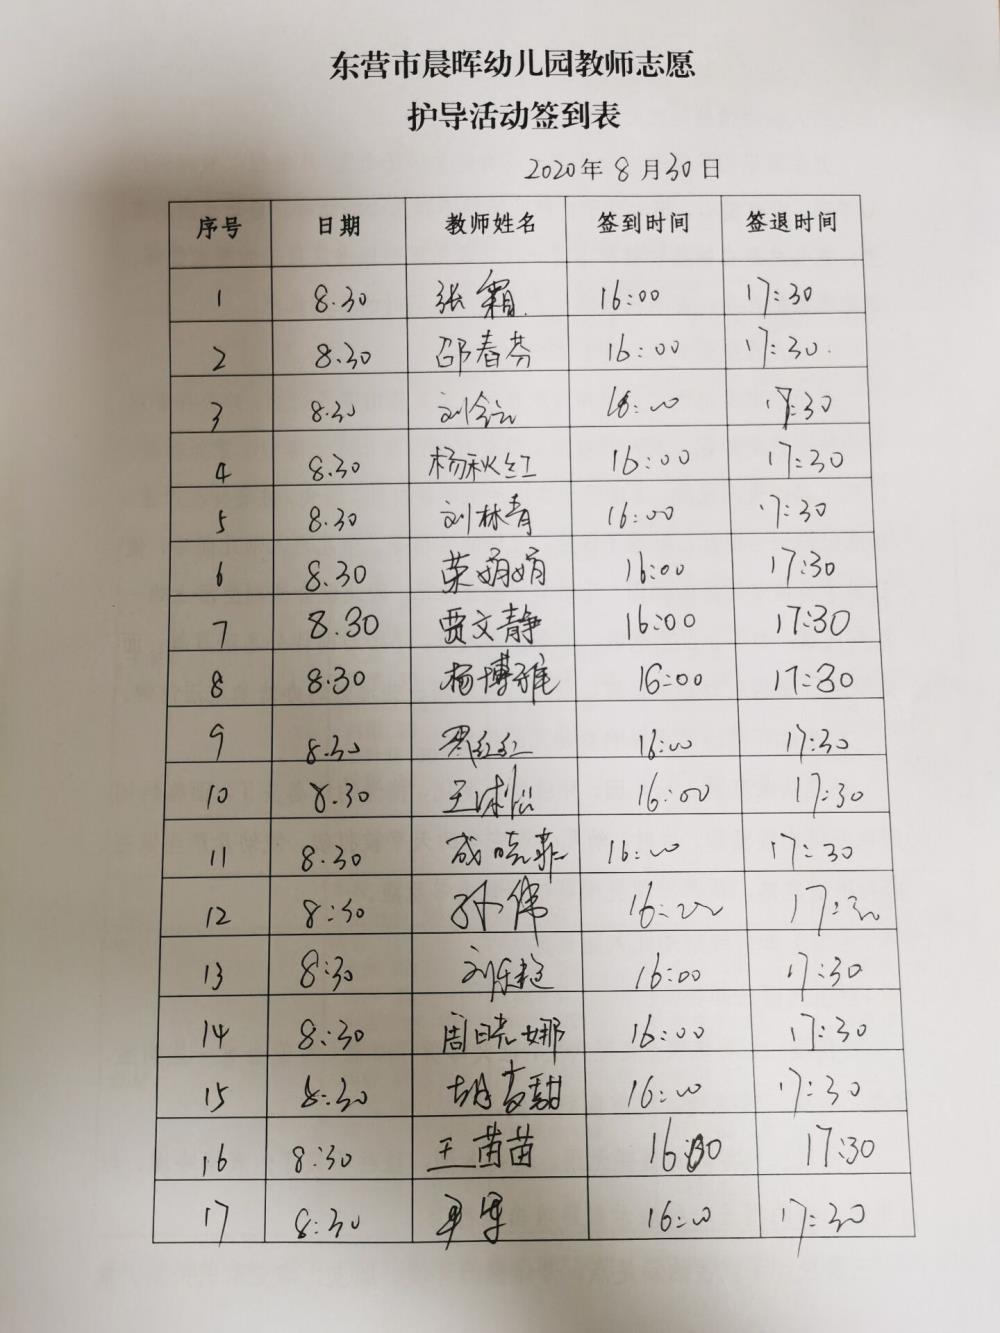 东营市晨晖幼儿园教师志愿
护导活动签到表
2020年8月30日
序号 日期 教师姓名 签到时间 签退时间
1 8.30 张霜 16:00 17:30
2 8.30 邵春芬 16:00 17:30
3 8.30 16:00 17:30
4 8.30 杨秋红 16:00 17:30
5 8.30 刘林青 16:00 17:30
6 8.30 荣娟娟 16:00 17:30
7 8.30 贾文静 16:00 17:30
8 8.30 杨博雅 16:00 17:30
9 8.30 16:00 17:30
10 8.30 16:00 17:30
11 8.30 成晓菲 16:00 17:30
12 8:30 孙伟 16:00 17:30
13 8:30 16:00 17:30
14 8:30 周晓娜 16:00 17:30
15 8:30 16:00 17:30
16 8:30 王苗苗 16:00 17:30
17 8:30 16:00 17:30